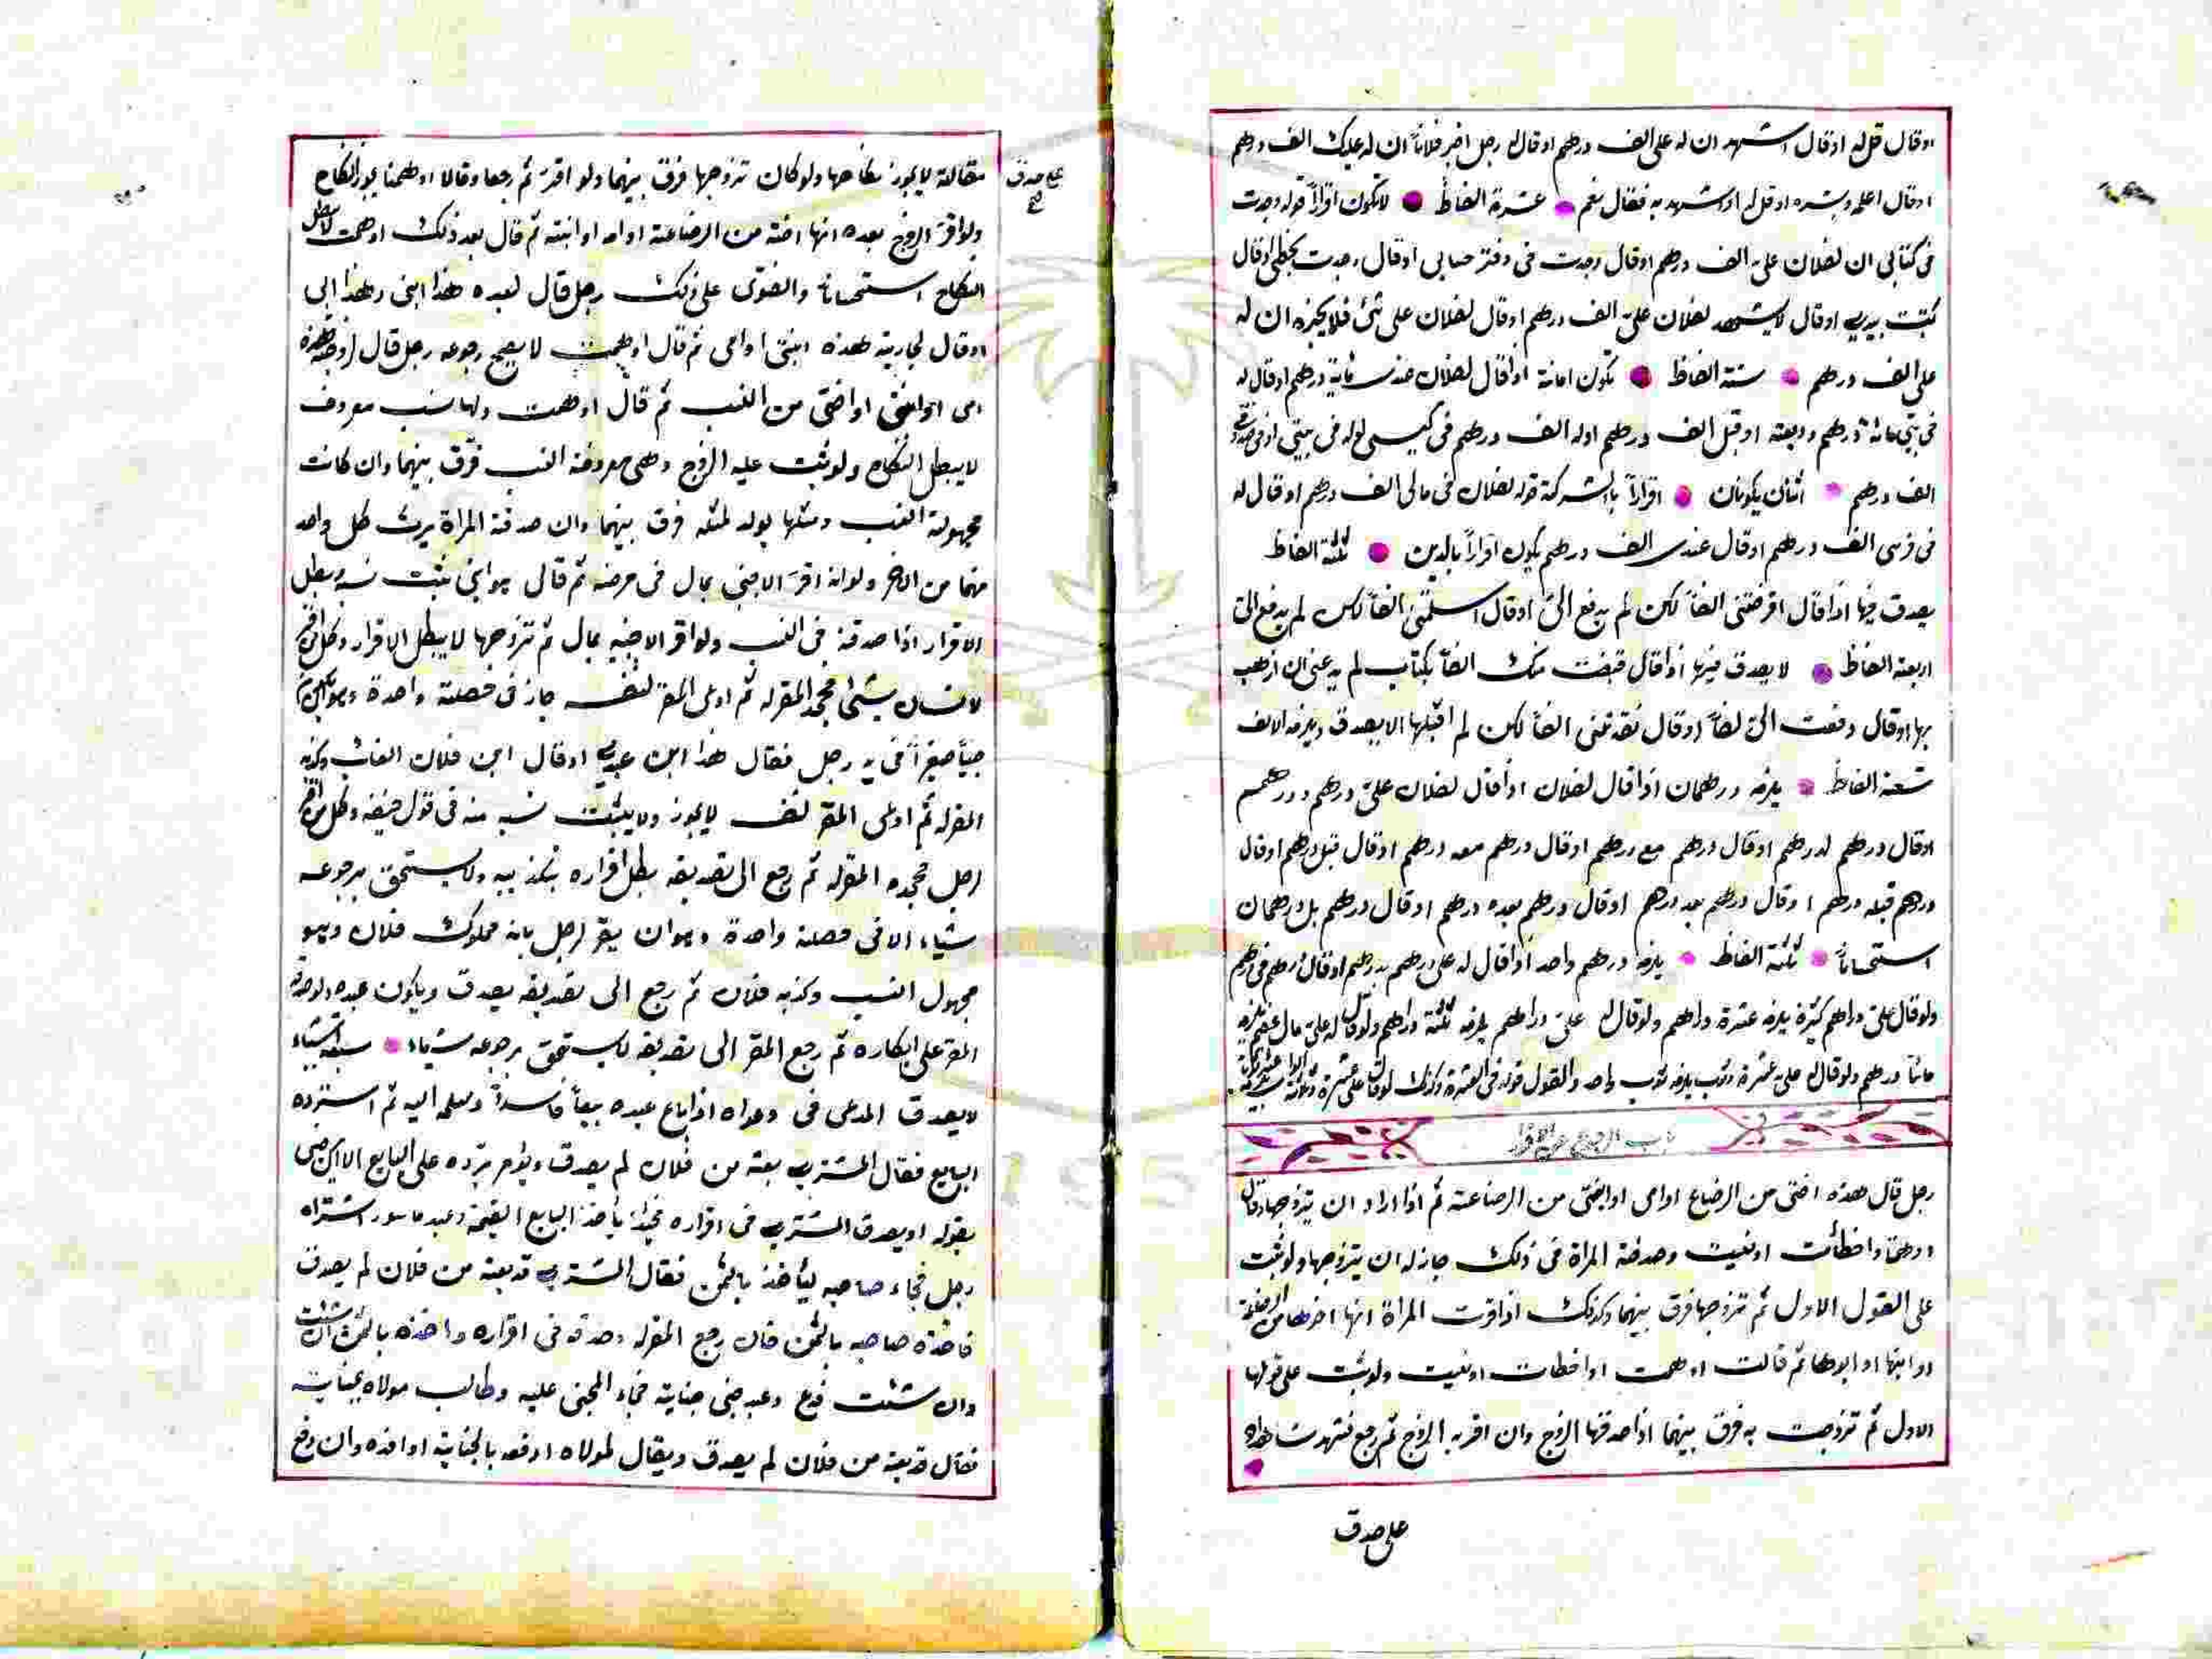 او قال قل له او قال اشهد ان له على الف درهم او قال له رجل اخبر فلانا ان له عليك الف درهم
او قال اعلمه وبشره او قل له او اشهد به فقال نعم عشرة الفاظ لا تكون اقرارا قوله وجدت
فى كتابى ان لفلان على الف درهم او قال وجدت فى دفتر حسابى او قال وجدت بخطى او قال
كتبت بيدى او قال لا يشهد لفلان على الف درهم او قال لفلان على شئ فلا يخبره ان له
على الف درهم ستة الفاظ تكون امانة اذا قال لفلان عندى مائة درهم او قال له
فى بيتى مائة درهم وديعة او قبلى الف درهم او له الف درهم فى كيسى او له فى بيتى او فى صندوقى
الف درهم اثنان يكونان اقرارا بالشركة قوله لفلان فى مالى الف درهم او قال له
فى فرسى الف درهم او قال عندى الف درهم يكون اقرارا بالدين ثلثة الفاظ
يصدق فيها اذا قال اقرضتنى الفا لكن لم يدفع الىّ او قال اسلمتنى الفا لكن لم يدفع الىّ
اربعة الفاظ لا يصدق فيها اذا قال قبضت منك الفا لم يدعنى ان اذهب
بها او قال دفعت الى الفا او قال نقدتنى الفا لكن لم اقبلها لا يصدق ويلزمه الالف
تسعة الفاظ يلزمه درهمان اذا قال لفلان على درهم ودرهم
او قال درهم مع درهم او قال درهم معه درهم او قال قبل درهم او قال
درهم قبله درهم او قال درهم بعد درهم او قال درهم بعده درهم او قال درهم بل درهمان
استحسانا ثلثة الفاظ يلزمه درهم واحد اذا قال له على درهم بدرهم او قال درهم فى درهم
ولو قال على دراهم كثيرة يلزمه عشرة دراهم ولو قال له على دراهم يلزمه ثلثة دراهم ولو قال له على مال عظيم يلزمه
مائتا درهم ولو قال له على عشرة وثوب يلزمه ثوب واحد والقول قوله فى العشرة وكذلك لو قال على عشرة
باب الرجوع عن الاقرار
رجل قال هذه اختى من الرضاع او امى او ابنتى من الرضاعة ثم اذا اراد ان يتزوجها وقال
اوهمت او اخطأت او نسيت وصدقته المراة فى ذلك جاز له ان يتزوجها ولو ثبت
على القول الاول ثم تزوجها فرق بينهما وكذلك اذا اقرت المراة انها اخوها من الرضاعة
او ابنها او ابوها ثم قالت اوهمت او اخطات او نسيت ولو ثبتت على قولها
الاول ثم تزوجت به فرق بينهما اذا صدقها الزوج وان اقر به الزوج ثم رجع فشهد شاهدان
على صدق
على صدق
مقالته لا يجوز نكاحها ولو كان تزوجها فرق بينهما ولو اقرّ ثم رجعا وقالا اوهمنا يجوز النكاح
ولو اقرّ الزوج بعده انها اخته من الرضاعة او امه او ابنته ثم قال بعد ذلك اوهمت لا يبطل
النكاح استحسانا والفتوى على ذلك رجل قال لعبده هذا ابنى وهذا ابى
او قال لجاريته هذه ابنتى او امى ثم قال اوهمت لا يصح رجوعه رجل قال لزوجته هذه
امى او ابنتى او اختى من النسب ثم قال اوهمت ولها نسب معروف
لا يبطل النكاح ولو ثبت عليه الزوج وهى معروفة النسب فرّق بينهما وان كانت
مجهولة النسب ومثلها يولد لمثله فرق بينهما وان صدقته المراة يرث كل واحد
منهما من الاخر ولو انه اقرّ لاجنبى بمال فى مرضه ثم قال هو ابنى يثبت نسبه وبطل
الاقرار اذا صدقه فى النسب ولو اقر لاجنبية بمال ثم تزوجها لا يبطل الاقرار وكل من اقر
لانسان بشئ فجحد المقر له ثم ادعى المقر لنفسه جاز فى خصلة واحدة
صبيا صغيرا فى يد رجل فقال هذا ابن عبدى او قال ابن فلان الغائب وكذبه
المقر له ثم ادعى المقر لنفسه لا يجوز ولا يثبت نسبه منه فى قول حنيفة وكل من اقر
لرجل فجحده المقر له ثم رجع الى تصديقه بطل اقراره بتكذيبه ولا يستحق برجوعه
شياء الا فى خصلة واحدة وهو ان يقر لرجل بانه مملوك فلان وهو
مجهول النسب وكذبه فلان ثم رجع الى تصديقه يصدق ويكون عبده
المقر على انكاره ثم رجع المقر الى تصديقه لا يستحق برجوعه شياء سبعة اشياء
لا يصدق المدعى فى دعواه اذا باع عبده بيعا فاسدا وسلمه اليه ثم استرده
البايع فقال المشترى بعته من فلان لم يصدق ويؤمر برده على البايع الا ان يرضى
بقوله او يصدق المشترى فى اقراره فحينئذ يأخذ البايع القيمة وعبد ماسور اشتراه
رجل فجاء صاحبه ليأخذ بالثمن فقال المشترى قد بعته من فلان لم يصدق
فاخذه صاحبه بالثمن فان رجع المقر له وصدقه فى اقراره واخذه بالثمن ان شئت
وان شئت فدع وعبد جنى جناية فجاء المجنى عليه وطالب مولاه بجنايته
فقال قد بعته من فلان لم يصدق ويقال لمولاه ادفعه بالجناية او افده وان دفع